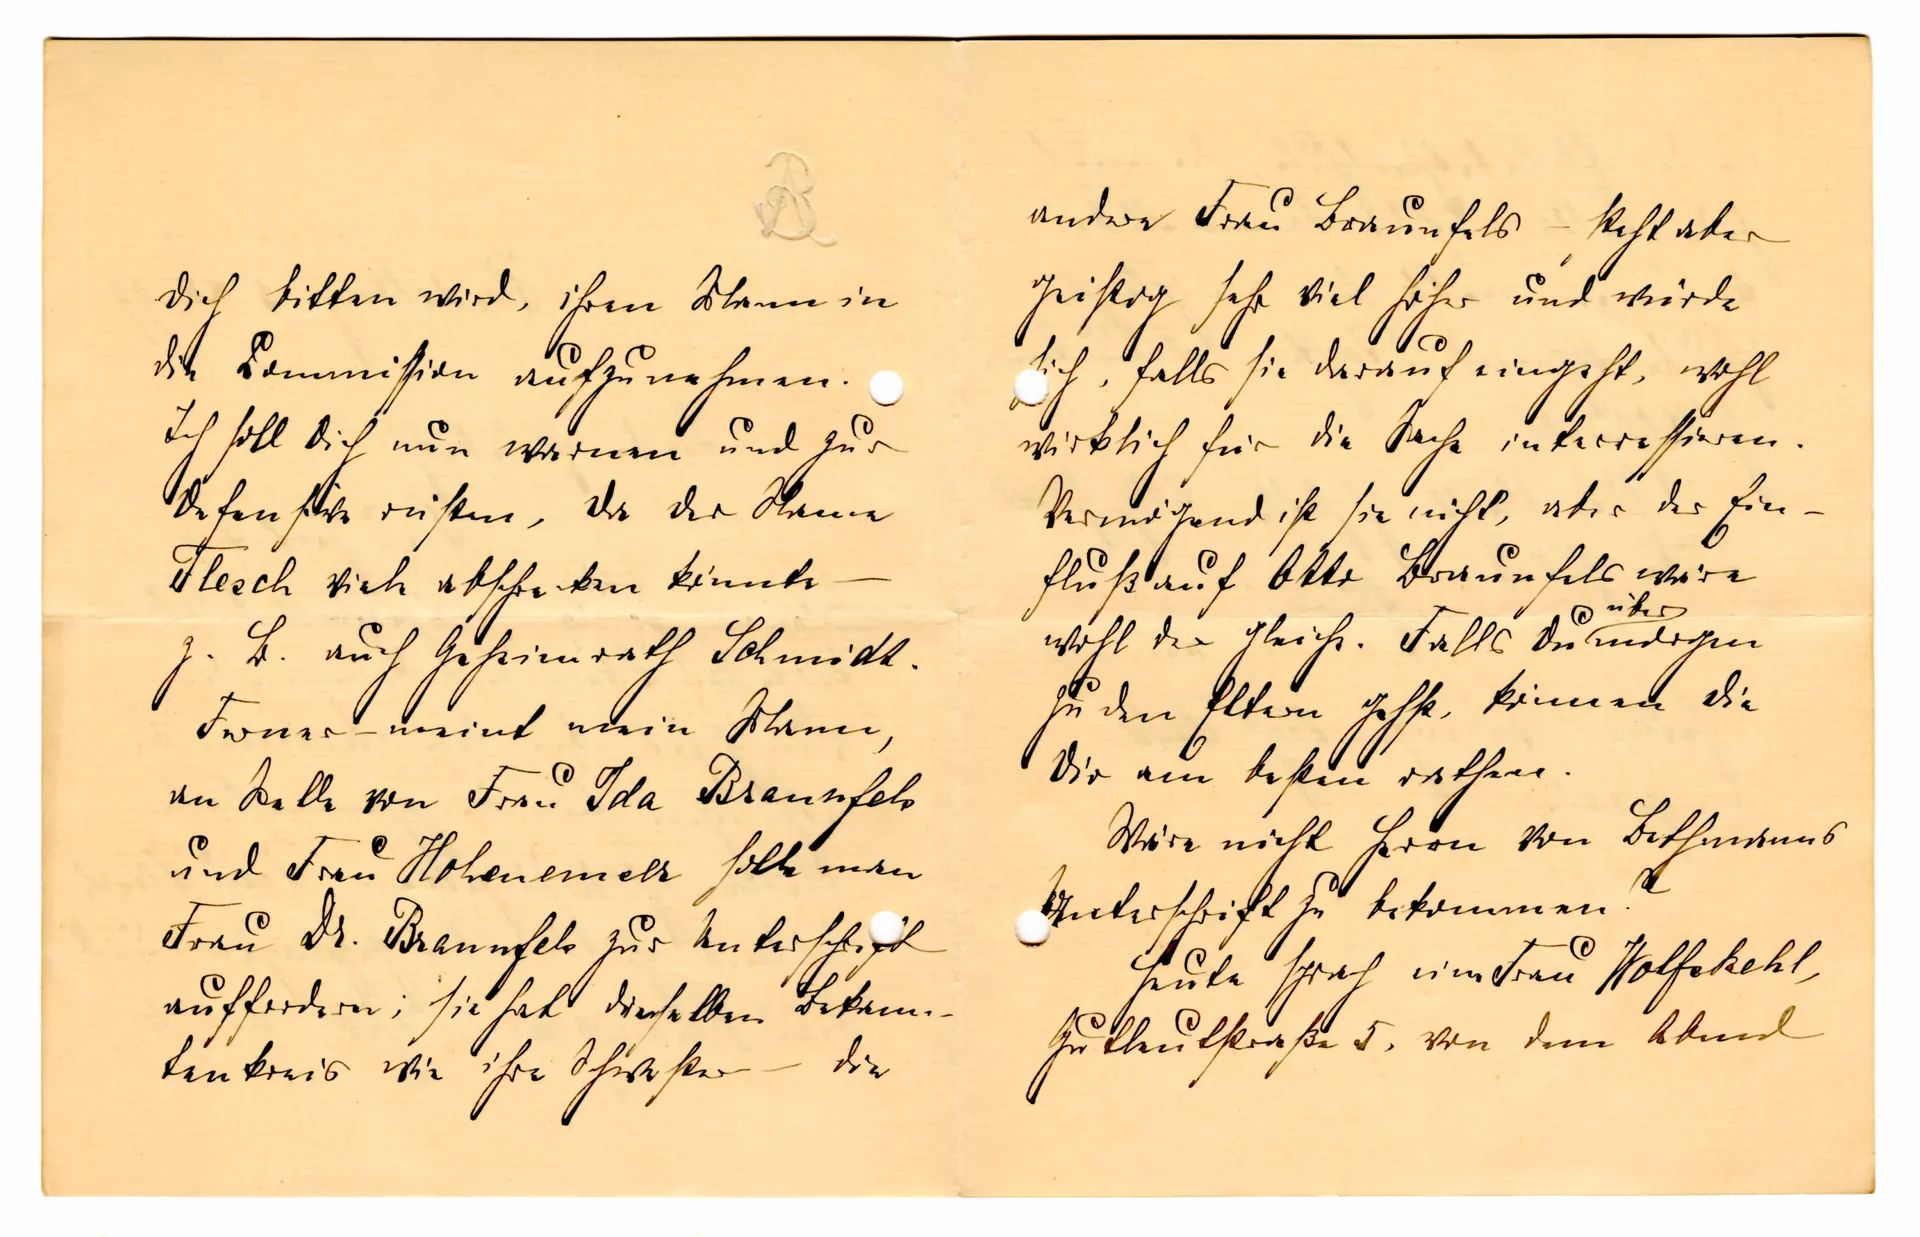 Dich bitten wird, ihren Mann in
die Commission aufzunehmen.
Ich soll Dich nun warnen und zur
Defensive rüsten, da der Name
Flesch viele abschrecken könnte —
z. B. auch Geheimrath Schmidt.
Ferner – meint mein Mann,
an Stelle von Frau Ida Braunfels
und Frau Hohenemser solle man
Frau Dr. Braunfels zur Unterschrift
auffordern; sie hat denselben Bekann-
tenkreis wie ihre Schwester – die
andere Frau Braunfels – steht aber
geistig sehr viel höher und würde
sich, falls sie darauf eingeht, wohl
wirklich für die Sache interressieren.
Vermögend ist sie nicht, aber der Ein-
fluß auf Otto Braunfels wäre
wohl der gleiche. Falls Du übermorgen
zu den Eltern gehst, können die
Dir am besten rathen.
Wäre nicht Herrn von Bethmanns
Unterschrift zu bekommen?
Heute sprach eine Frau Wolfskehl,
Gutleutstraße 5, von dem Abend
AB